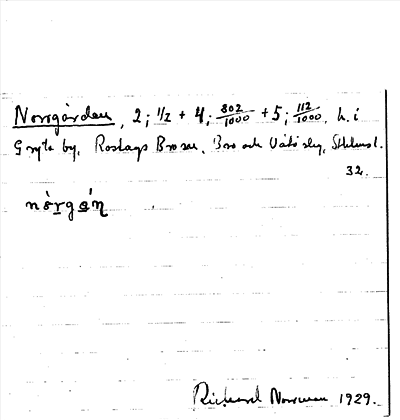 Norrgården, 2; 1/2 + 4; 802/1000 + 5; 112/1000, h. i
Gryta by, Roslags Bro sn, Bro och Vätö slg, Sthlms l.
32.
nòrgɑ́ŋ
Rickard Norman 1929.